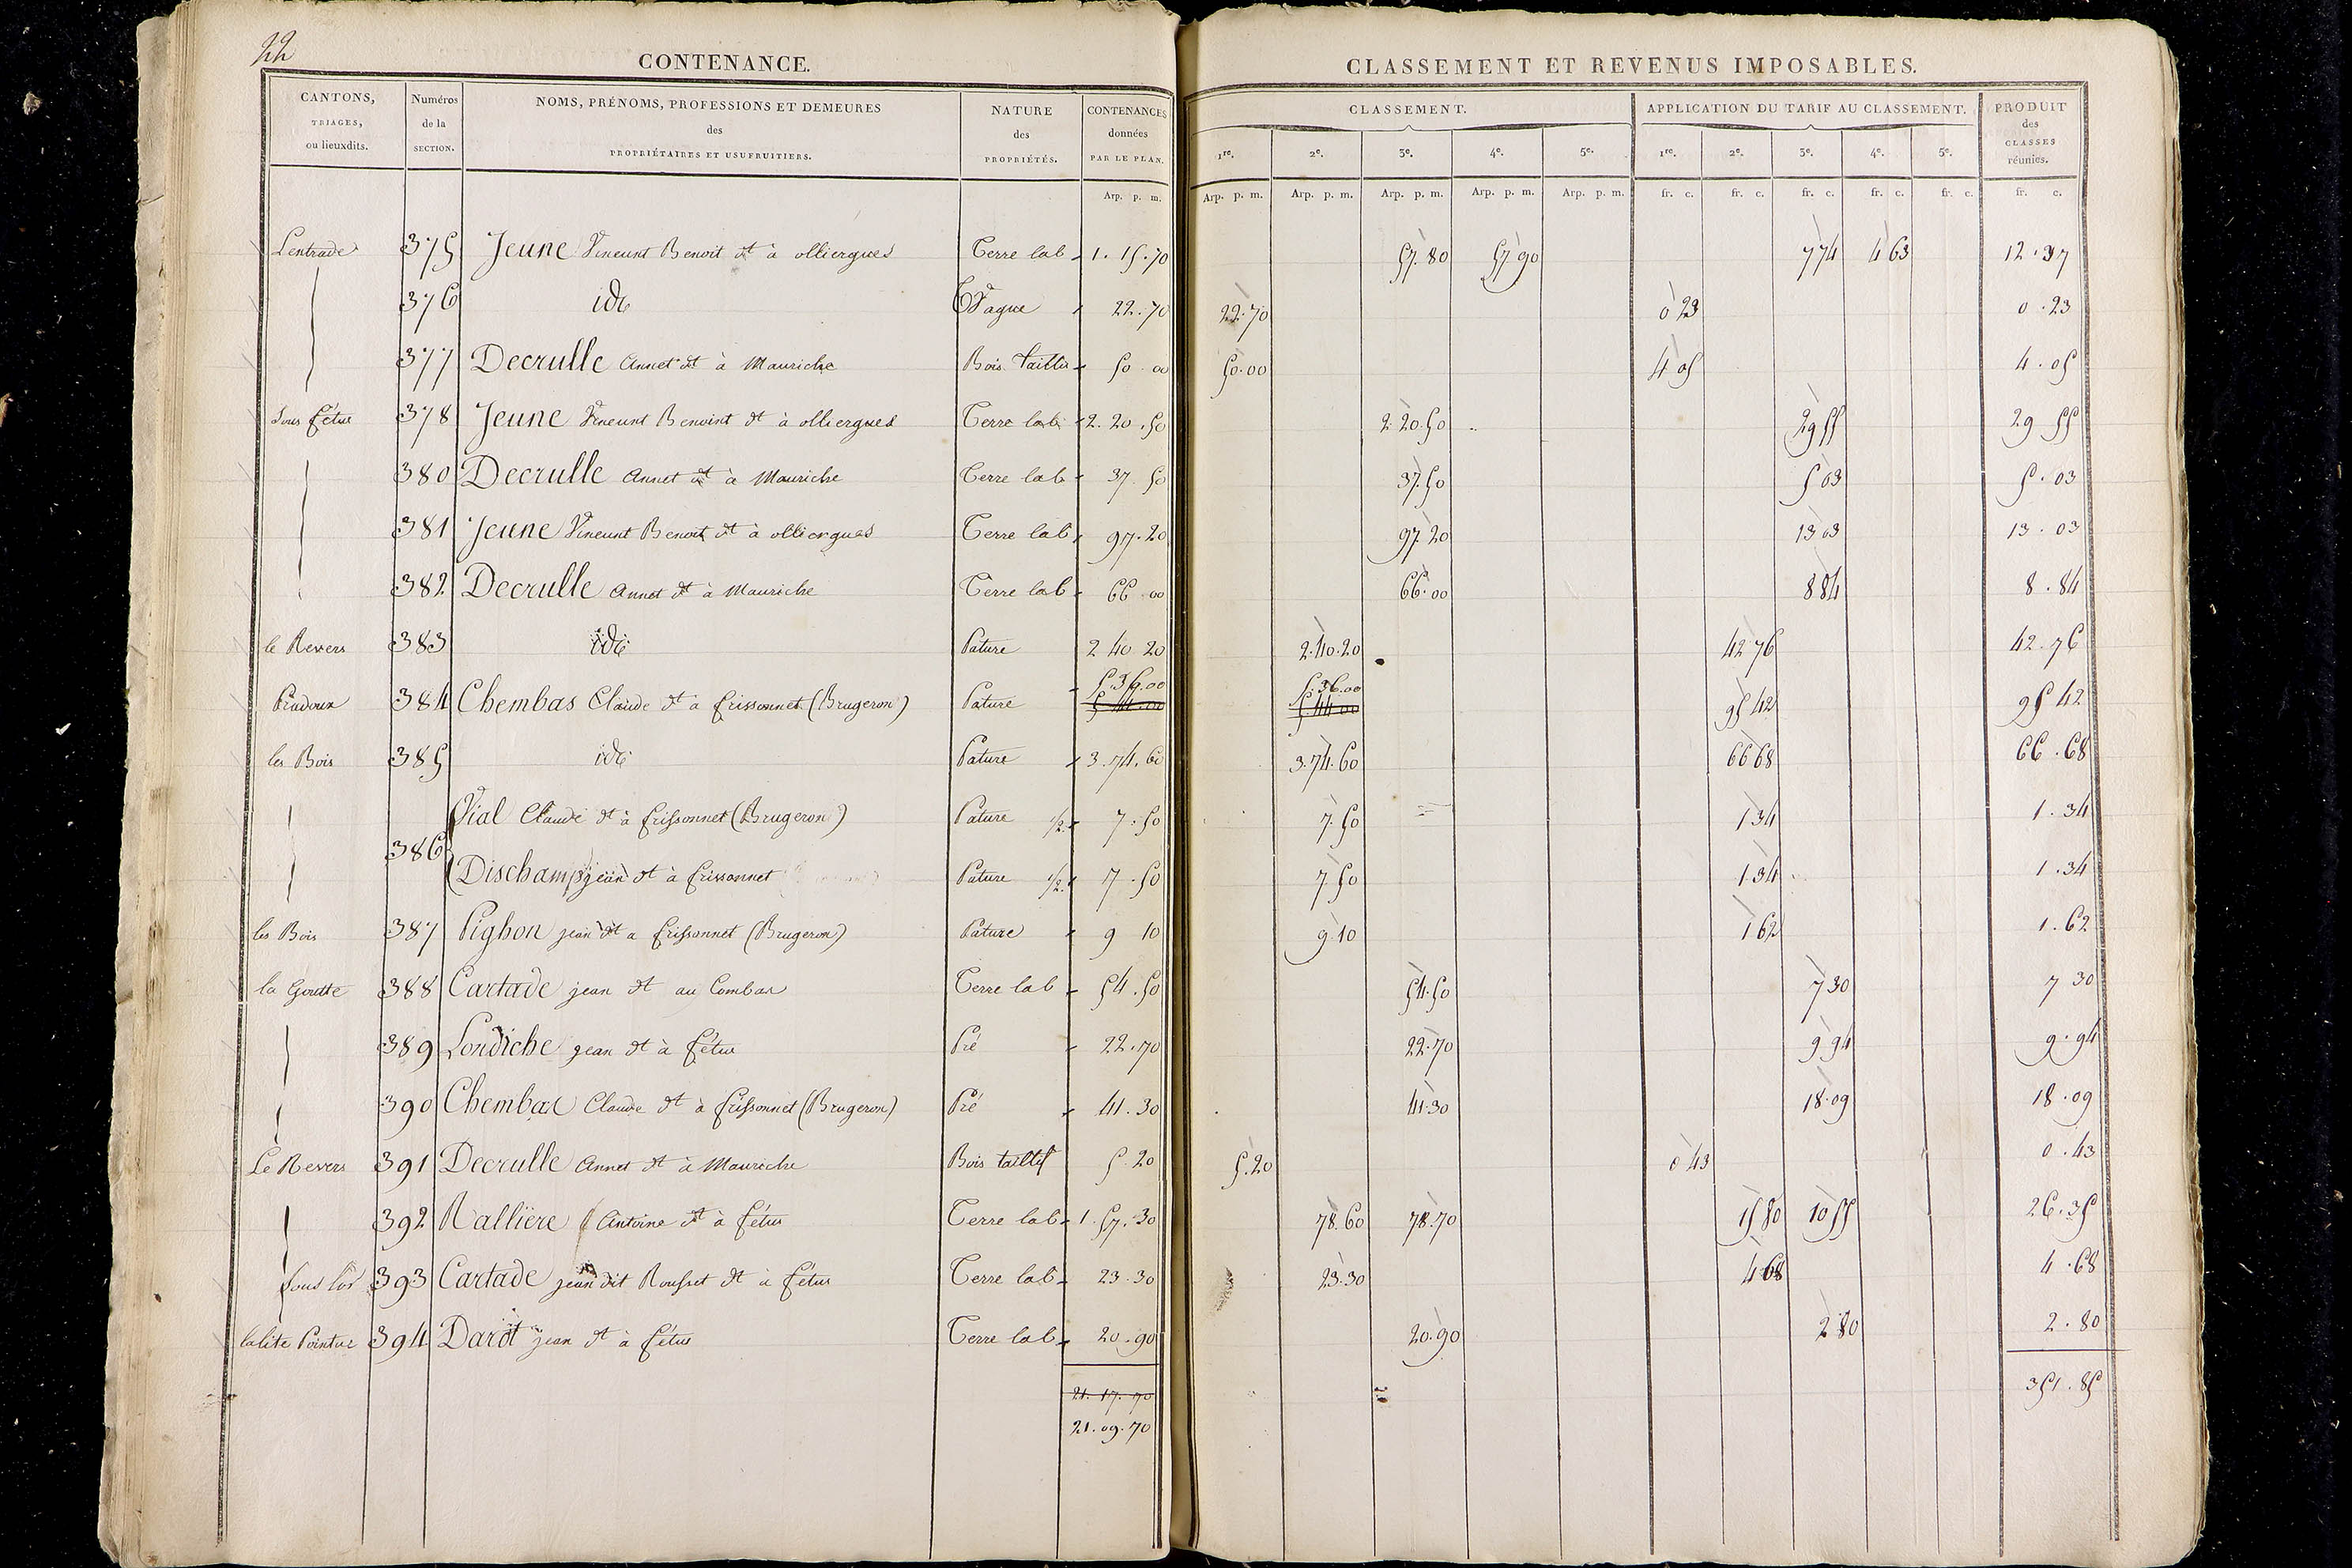 22
CONTENANCE.
CLASSEMENT ET REVENUS IMPOSABLES.
CANTONS, TRIAGES, ou lieuxdits.
Numéros de la SECTION.
NOMS, PRÉNOMS, PROFESSIONS ET DEMEURES des PROPRIÉTAIRES ET USUFRUITIERS.
NATURE des PROPRIÉTÉS.
CONTENANCES données PAR LE PLAN.
CLASSEMENT.
APPLICATION DU TARIF AU CLASSEMENT.
PRODUIT des CLASSES réunies.
1re. 2e. 3e. 4e. 5e. 1re. 2e. 3e. 4e. 5e.
Arp. p. m. Arp. p. m. Arp. p. m. Arp. p. m. Arp. p. m. Arp. p. m. fr. c. fr. c. fr. c. fr. c. fr. c. fr. c.
Lentrade 375 Jeune Vincent Benoit dt à olliergues Terre lab 1. 15. 70 57. 80 57 90 7 74 4 63 12. 37
376 ide Vague 22. 70 22. 70 0 23 0. 23
377 Decrulle Annet dt à Mauriche Bois taillis 50 00 50. 00 4 05 4. 05
Sous fétus 378 Jeune Vincent Benoint dt à olliergues Terre lab 2. 20. 50 2. 20. 50 29 55 29 55
380 Decrulle Annet dt à Mauriche Terre lab 37 50 37. 50 5 03 5. 03
381 Jeune Vincent Benoit dt à olliergues Terre lab 97. 20 97 20 13 03 13. 03
382 Decrulle Annet dt à Mauriche Terre lab 66 00 66. 00 8 84 8. 84
le Revers 383 ide Pature 2 40 20 2. 40. 20 42 76 42. 76
5. 36. 00 5. 36. 00
Pradoux 384 Chembas Claude dt à frissonnet (Brugeron) Pature 5 44. 00 5 44 00 95 42 95 42
les Bois 385 ide Pature 3. 74. 60 3. 74. 60 66 68 66. 68
Vial Claude dt à frissonnet (Brugeron) Pature 1/2 7. 50 7. 50 1 34 1. 34
386
Dischamps jean dt à frissonnet Pature 1/2 7. 50 7. 50 1 34 1. 34
les Bois 387 Pighon jean dt a frissonnet (Brugeron) Pature 9 10 9. 10 1 62 1. 62
la Goutte 388 Cartade jean dt au Combas Terre lab 54. 50 54. 50 7 30 7 30
389 Londiche jean dt à fétus Pré 22. 70 22. 70 9 94 9. 94
390 Chembas Claude dt à frissonnet (Brugeron) Pré 41. 30 41. 30 18. 09 18. 09
Le Revers 391 Decrulle Annet dt à Mauriche Bois taillis 5. 20 5. 20 0 43 0. 43
392 Rallière Antoine dt à fétus Terre lab 1. 57. 30 78. 60 78. 70 15 80 10 55 26. 35
393 Cartade jean dit Rousset dt à fétus Terre lab 23. 30 23. 30 4 68 4. 68
394 Darot jean dt à fétus Terre lab 20. 90 20. 90 2 80 2. 80
21. 17. 70 351. 85
21. 09. 70